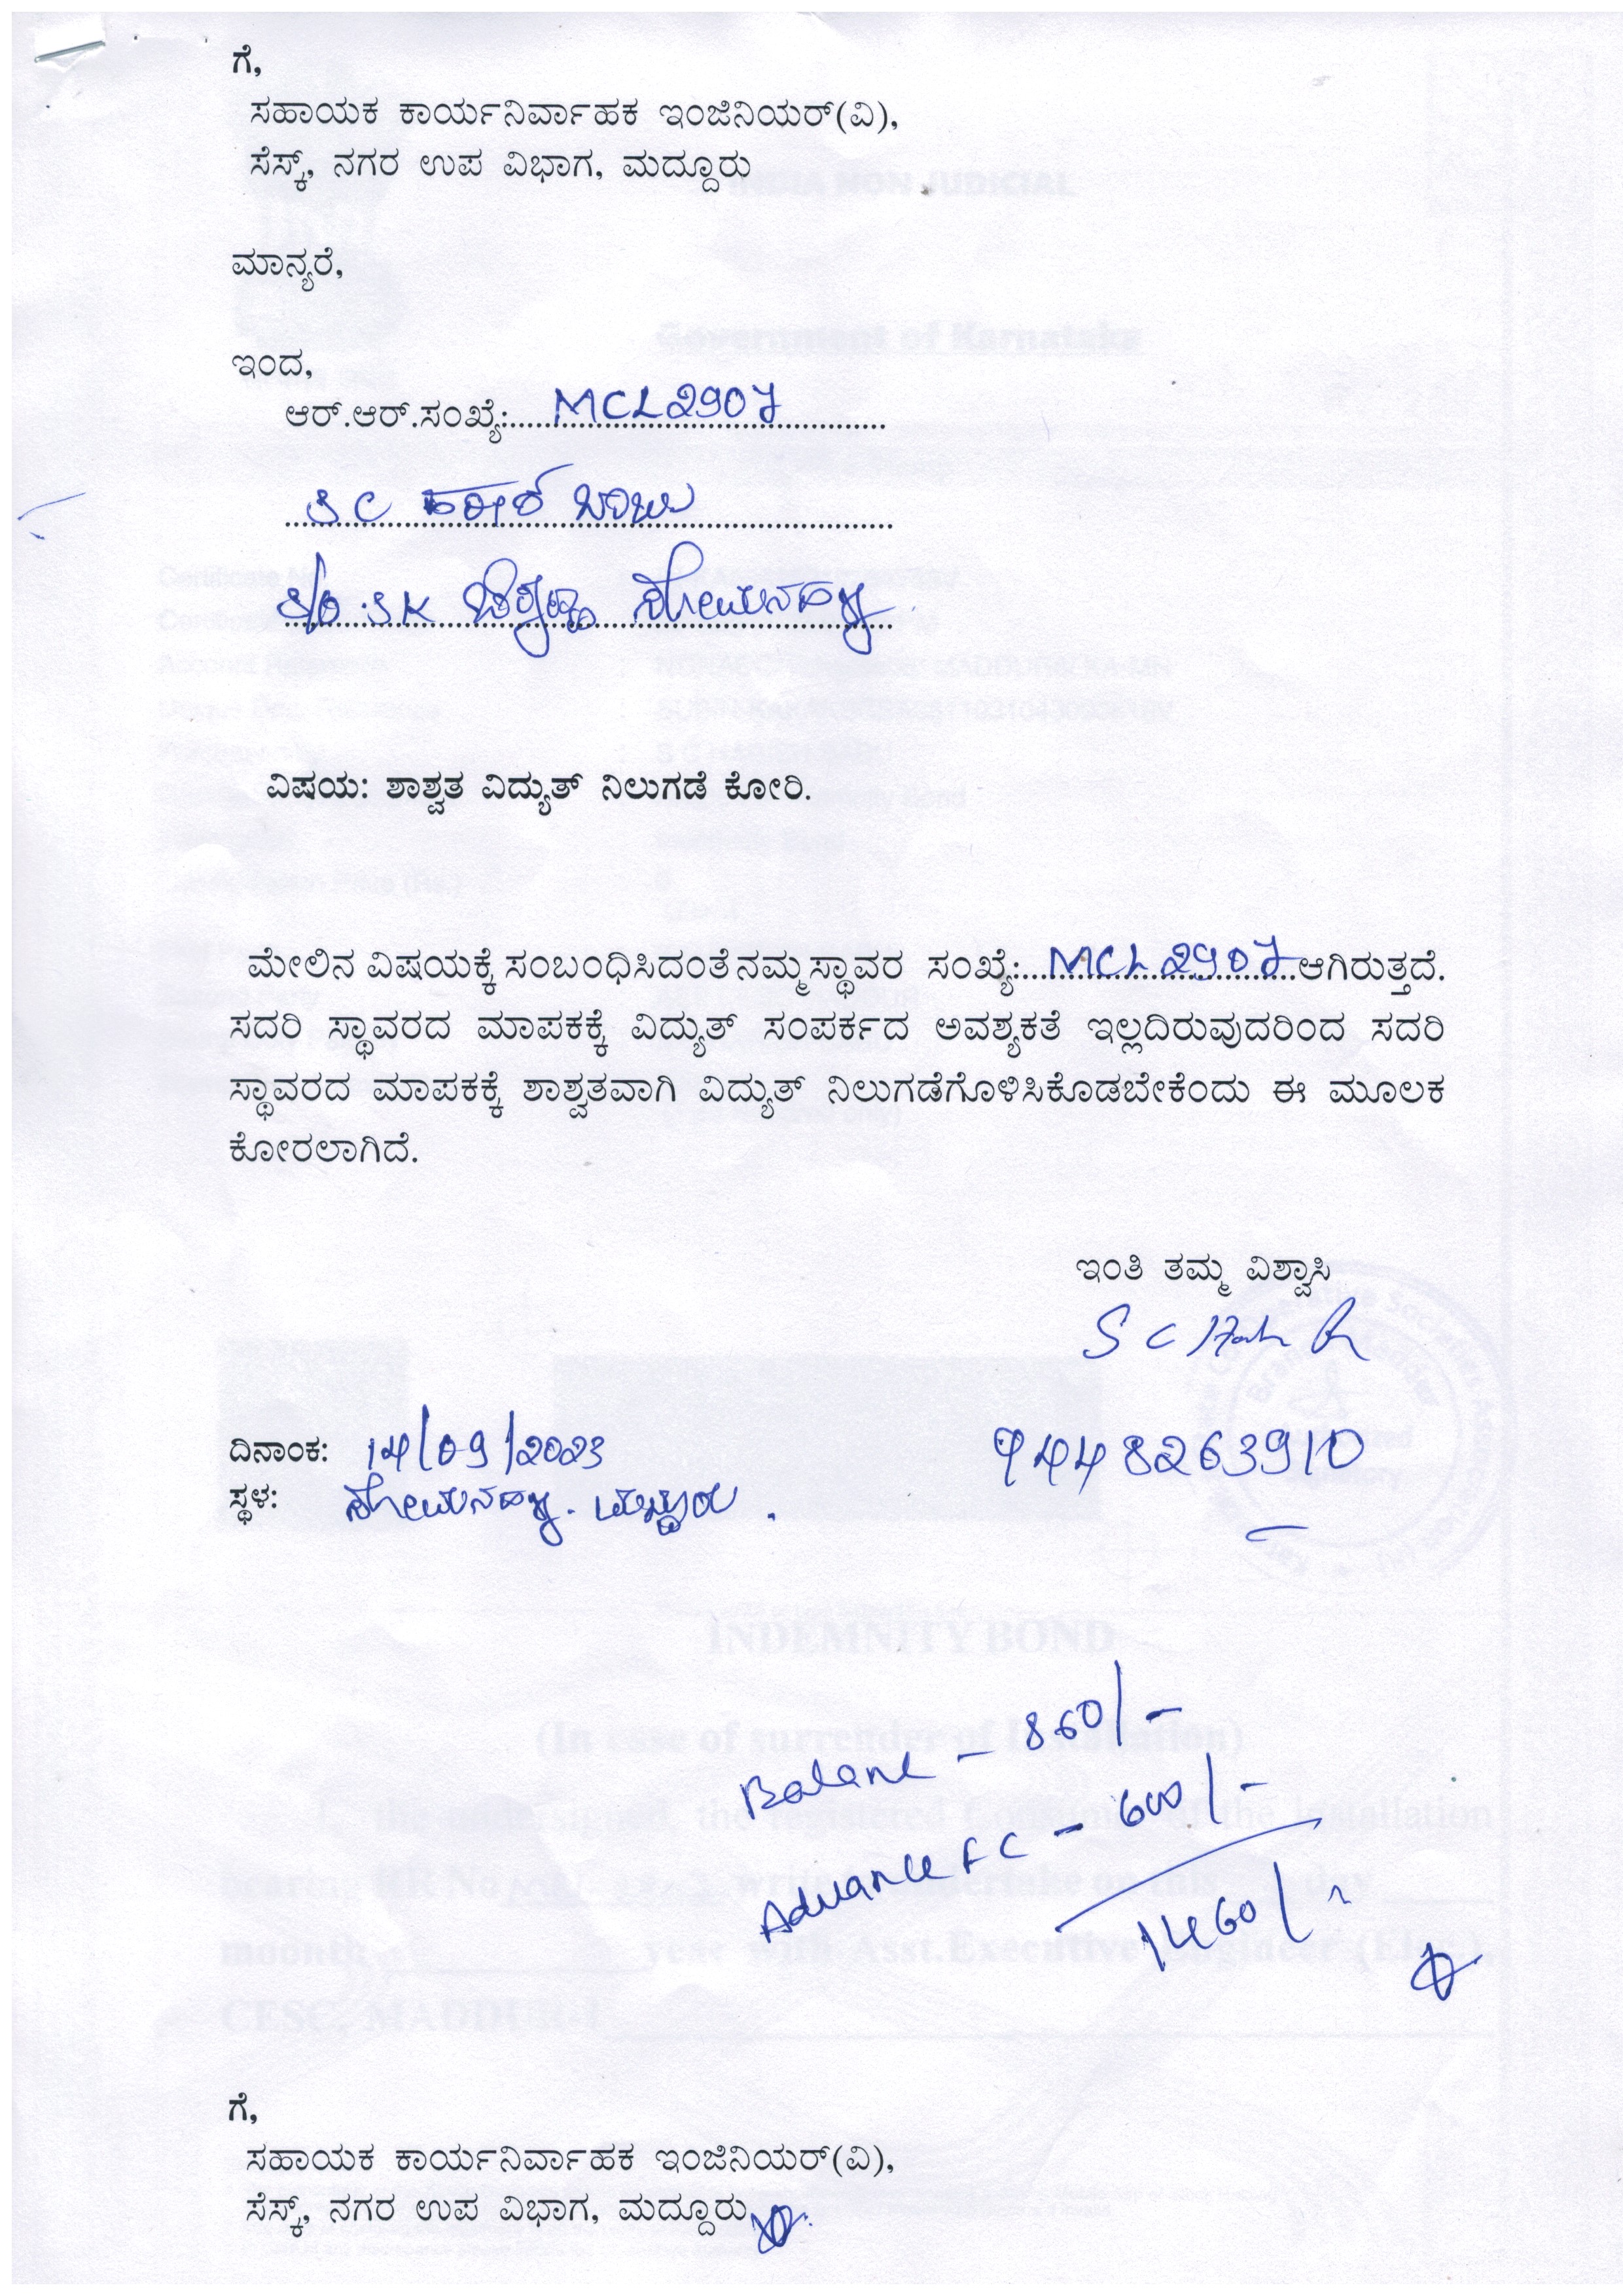 ಗೆ,
ಸಹಾಯಕ ಕಾರ್ಯನಿರ್ವಾಹಕ ಇಂಜಿನಿಯರ್(ವಿ),
ಸೆಸ್ಕ್, ನಗರ ಉಪ ವಿಭಾಗ, ಮದ್ದೂರು
ಮಾನ್ಯರೆ,
ಇಂದ,
ಆರ್.ಆರ್.ಸಂಖ್ಯೆ: MCL2907
S C ಹರೀಶ ಬಾಬು
S/O : SK ಸೋಮನಹಳ್ಳಿ
ವಿಷಯ: ಶಾಶ್ವತ ವಿದ್ಯುತ್ ನಿಲುಗಡೆ ಕೋರಿ.
ಮೇಲಿನ ವಿಷಯಕ್ಕೆ ಸಂಬಂಧಿಸಿದಂತೆ ನಮ್ಮ ಸ್ಥಾವರ ಸಂಖ್ಯೆ: MCL 2907 ಆಗಿರುತ್ತದೆ.
ಸದರಿ ಸ್ಥಾವರದ ಮಾಪಕಕ್ಕೆ ವಿದ್ಯುತ್ ಸಂಪರ್ಕದ ಅವಶ್ಯಕತೆ ಇಲ್ಲದಿರುವುದರಿಂದ ಸದರಿ
ಸ್ಥಾವರದ ಮಾಪಕಕ್ಕೆ ಶಾಶ್ವತವಾಗಿ ವಿದ್ಯುತ್ ನಿಲುಗಡೆಗೊಳಿಸಿಕೊಡಬೇಕೆಂದು ಈ ಮೂಲಕ
ಕೋರಲಾಗಿದೆ.
ಇಂತಿ ತಮ್ಮ ವಿಶ್ವಾಸಿ
ದಿನಾಂಕ: 14/09/2023
9448263910
ಸ್ಥಳ: ಸೋಮನಹಳ್ಳಿ. ಮದ್ದೂರು.
INDEMNITY BOND
(In case of surrender of Installation)
Balance - 860/-
Advance FC - 600/-
1460/-
ಗೆ,
ಸಹಾಯಕ ಕಾರ್ಯನಿರ್ವಾಹಕ ಇಂಜಿನಿಯರ್(ವಿ),
ಸೆಸ್ಕ್, ನಗರ ಉಪ ವಿಭಾಗ, ಮದ್ದೂರು